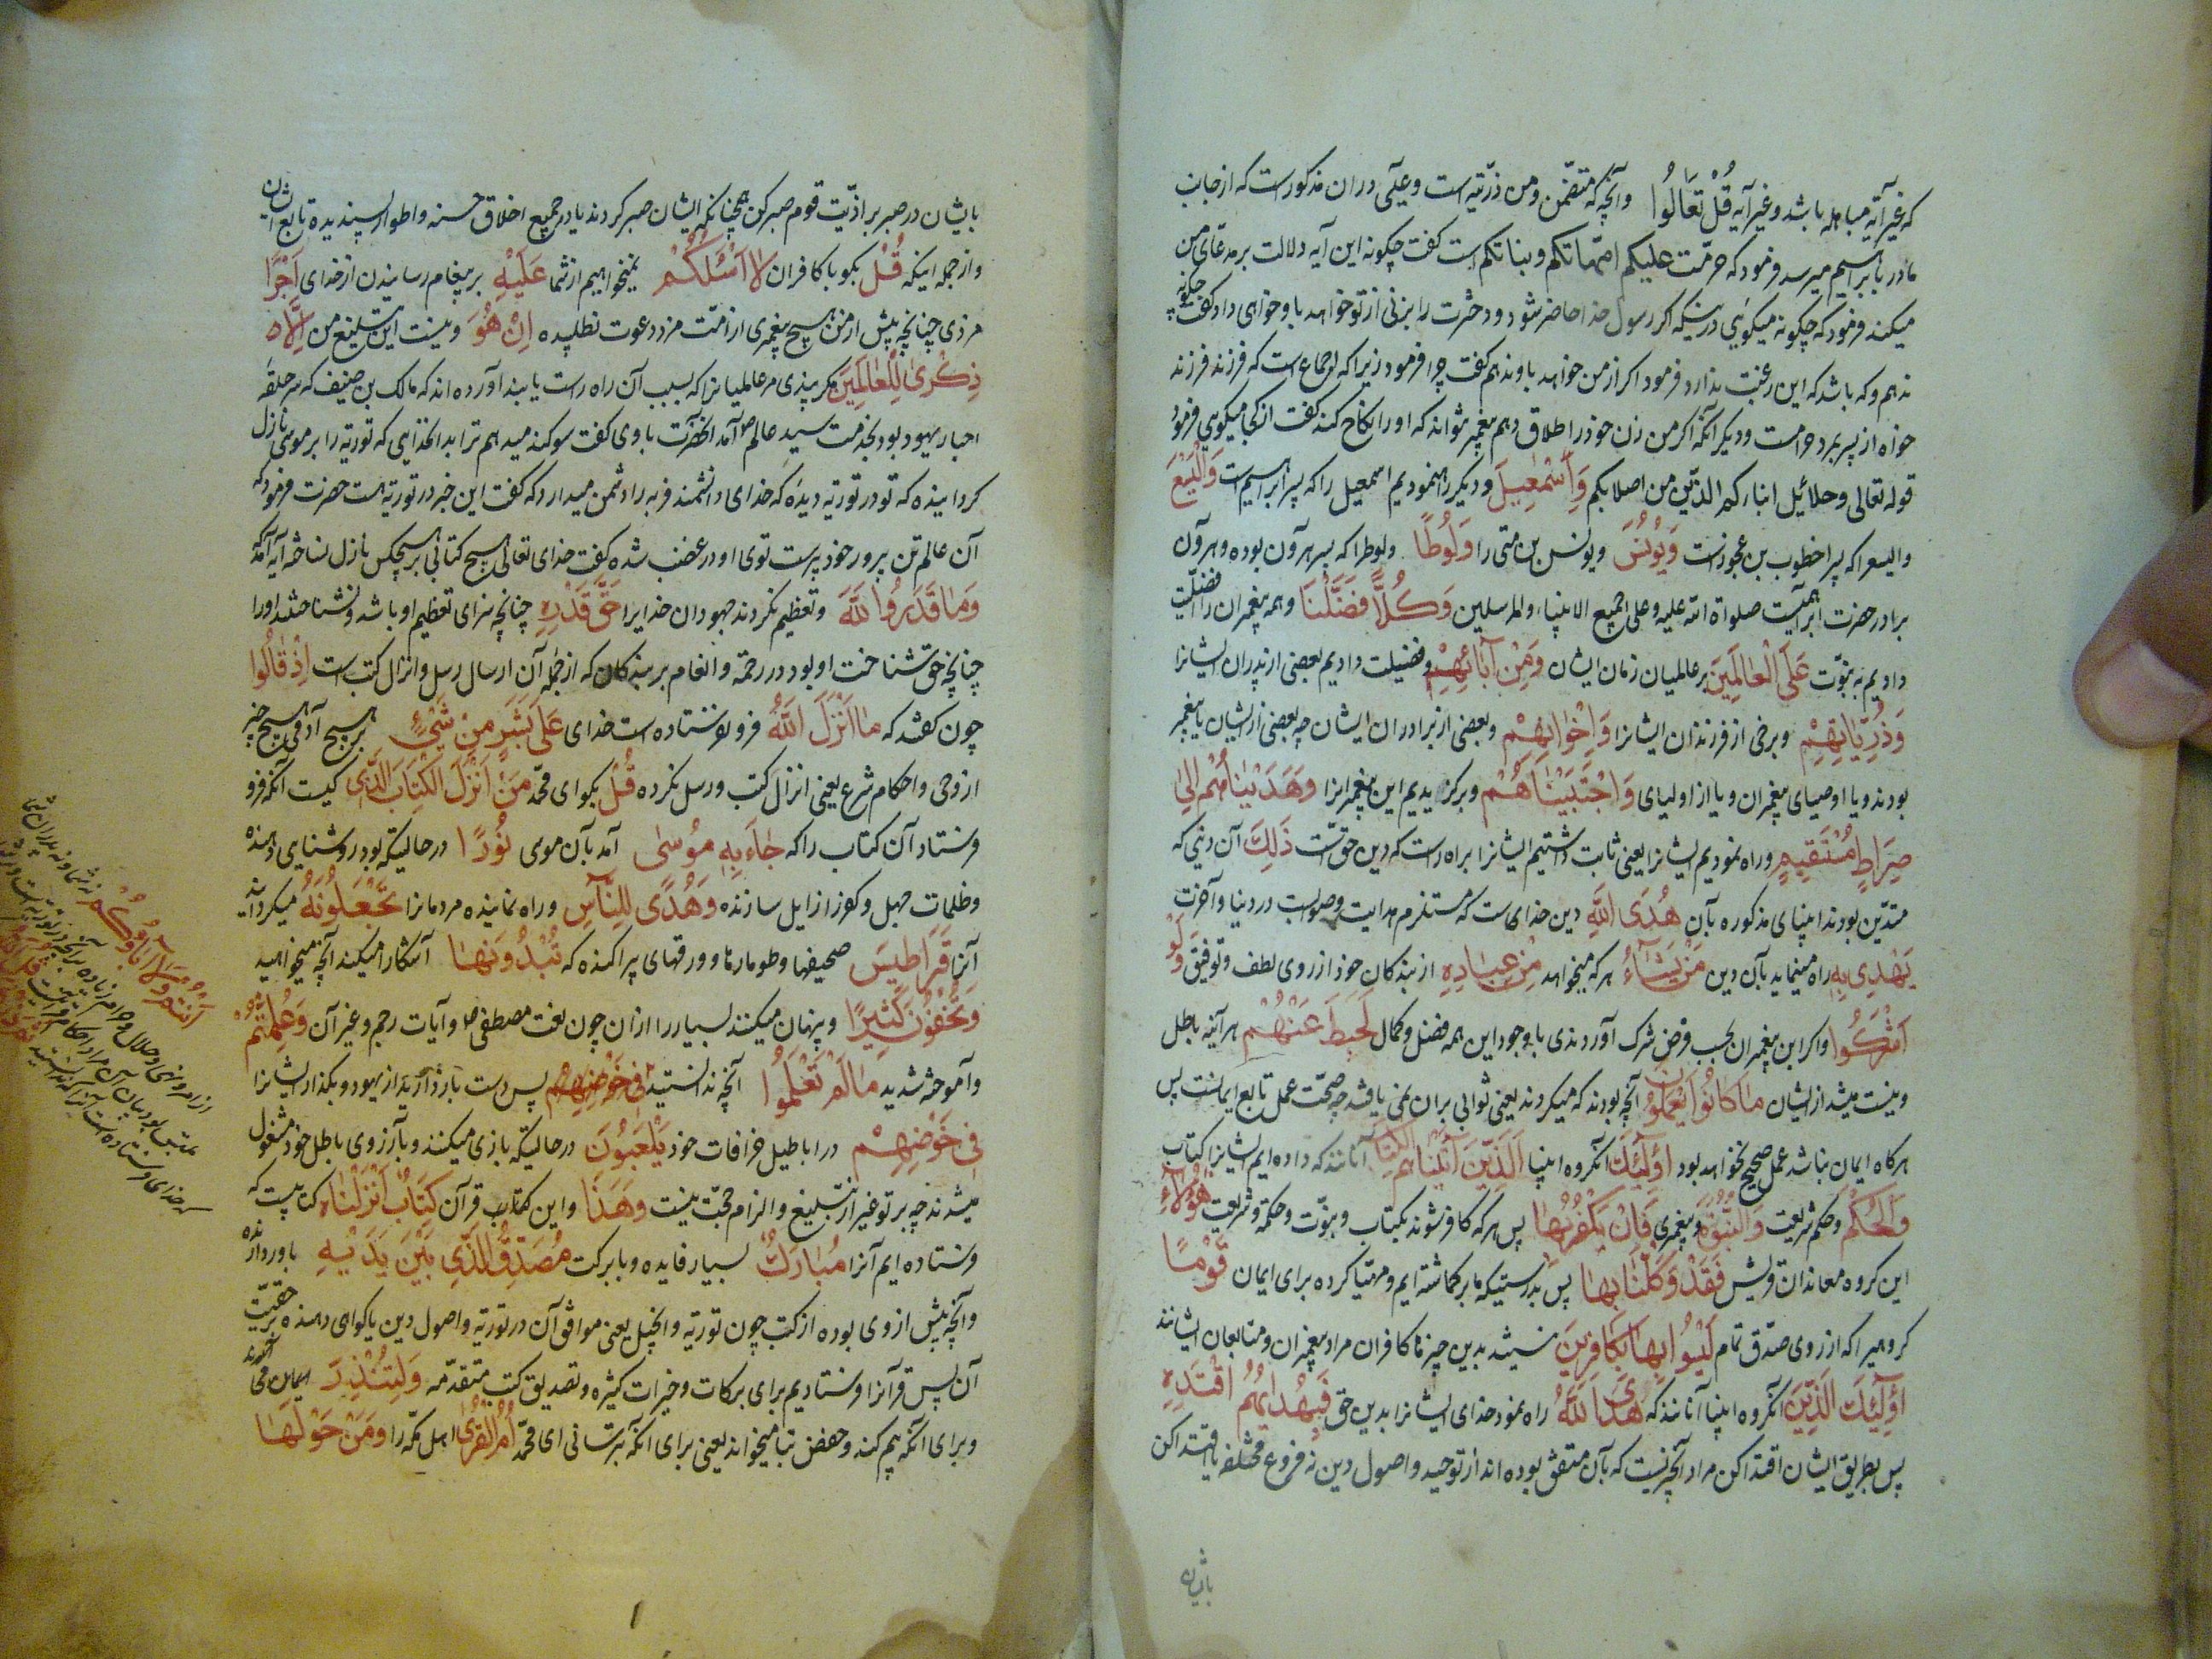 که غیر آیه مباهله باشد و غیر آیه قُلْ تَعَالُوا وآنچه که متضمن ومن ذرّیته است و عیسی در ان مذکور است که از جانب
مادر بابراهیم میرسد فرمود که حرّمت علیکم امّهاتکم وبناتکم است کفت چکونه این آیه دلالت بر مدعای من
میکند فرمود که چکونه میکویی در اینکه کر رسول خدا حاضر شود و دخترت را بزنی از تو خواهد باو خواهی داد کفت چکونه
ندهم وکه باشد که این رغبت ندارد فرمود اکر از من خواهد باو ندهم کفت چرا فرمود زیرا که اجماع است که فرزند فرزند
خواه از پسر برد حرامست ودیکر آنکه اکر من زن خود را طلاق دهم پیغمبر میتواند که او را نکاح کند کفت از کجا میکویی فرمود
قوله تعالی وحلائل ابناءکم الذین من اصلابکم وَاِسْمٰعِیلَ ودیکر راه نمودیم اسمعیل را که پسر ابراهیم است وَالْیَسَعَ
والیسع را که پسر اخطوب بن عجوزاست وَیُونُسَ ویونس بن متی را وَلُوطًا ولوط را که پسر هرآن بوده وهرآن
برادر حضرت ابراهیم است صلواة الله علیه وعلی جمیع الانبیاء والمرسلین وَکُلّاً فَضَّلْنَا وهمه پیغمبران را فضیلت
دادیم به نبوّت عَلَی الْعٰالَمِینَ بر عالمیان زمان ایشان وَمِنْ آبٰائِهِمْ وفضیلت دادیم بعضی از پدران ایشانرا
وَذُرِّیّٰاتِهِمْ وبرخی از فرزندان ایشانرا وَاِخْوٰانِهِمْ وبعضی از برادران ایشان چه بعضی از ایشان یا پیغمبر
بودند ویا اوصیای پیغمبران ویا از اولیای وَاجْتَبَیْنٰاهُمْ وبرکزیدیم این پیغمبرانرا وهَدَیْنٰاهُمْ اِلیٰ
صِرٰاطٍ مُسْتَقِیمٍ وراه نمودیم ایشانرا یعنی ثابت داشتیم ایشانرا براه راست که دین حق است ذٰلِکَ آن دینی که
متدیّن بودند انبیای مذکوره بآن هُدَی اللهِ دین خدای است که مستلزم هدایت وصوابست در دنیا وآخرت
یَهْدِی بِهِ راه مینماید بآن دین مَنْ یَشٰآءُ هر که میخواهد مِنْ عِبٰادِهِ از بندکان خود از روی لطف وتوفیق وَلَوْ
اَشْرَکُوا واکر این پیغمبران بحسب فرض شرک آوردندی با وجود این همه فضل وکمال لَحَبِطَ عَنْهُمْ هر آینه باطل
ونیست میشد از ایشان مٰا کٰانُوا یَعْمَلُونَ آنچه بودند که میکردند یعنی ثوابی بران نمی یافتند چه صحّت عمل تابع ایمانست پس
هرکاه ایمان نباشد عمل صحیح نخواهد بود اُولٰٓئِکَ آنکروه انبیا اَلَّذِینَ آتَیْنٰاهُمُ الْکِتٰابَ آنانند که داده ایم ایشانرا کتاب
وَالْحُکْمَ وحکم شریعت وَالنُّبُوَّةَ وپیغمبری فَاِنْ یَکْفُرْ بِهٰا پس هر که کافر شوند بکتاب ونبوّت وحکمة وشریعت هٰؤُلٰاءِ
این کروه معاندان قریش فَقَدْ وَکَّلْنٰا بِهٰا پس بدرستیکه ما برکماشته ایم ومهیّا کرده برای ایمان قَوْمًا
کروهیرا که از روی صدق تمام لَیْسُوا بِهٰا بِکٰافِرِینَ نیستند بدین چیزها کافران مراد پیغمبران ومتابعان ایشانند
اُولٰٓئِکَ الَّذِینَ آنکروه انبیا آنانند که هَدَی اللهُ راه نمود خدای ایشانرا بدین حق فَبِهُدٰیهُمُ اقْتَدِهِ
پس بطریق ایشان اقتدا کن مراد آنچیزیست که بآن متفق بوده اند از توحید واصول دین نه فروع مختلفه یا اقتدا کن
بایشان
بایشان در صبر بر اذیّت قوم صبر کن همچنانکه ایشان صبر کردند یا در جمیع اخلاق حسنه واطوار پسندیده تابع ایشان
واز جمله اینکه قُلْ بکو با کافران لٰا اَسْئَلُکُمْ نمیخواهم از شما عَلَیْهِ بر پیغام رسانیدن از خدای اَجْرًا
مزدی چنانچه پیش از من هیچ پیغمبری از امّت مزد دعوت نطلبیده اِنْ هُوَ ونیست این تبلیغ من اِلّٰا
ذِکْریٰ لِلْعٰالَمِینَ مکر پندی مر عالمیانرا که بسبب آن راه راست یابند آورده اند که مالک بن صیف که سر حلقهٔ
احبار یهود بود بخدمت سید عالم آمد انحضرت با وی کفت سوکند میدهم ترا بدانخدایی که توریه را بر موسی نازل
کردانیده که تو در توریه دیدهٔ که خدای دانشمند فربه را دشمن میدارد که کفت این خبر در توریه هست حضرت فرمود که
آن عالم تن پرور خود پرست توی او در غضب شده کفت خدای تعالی هیچ کتابی بر هیچکس نازل نساخته آیه آمد که
وَمٰا قَدَرُوا اللهَ وتعظیم نکردند جهودان خدایرا حَقَّ قَدْرِهِ چنانچه سزای تعظیم او باشد ونشناختند او را
چنانچه حق شناخت او بود در رحمة وانعام بر بندکان که از جمله آن ارسال رسل وانزال کتب است اِذْ قٰالُوا
چون کفتند که مٰا اَنْزَلَ اللهُ فرو نفرستاده است خدای عَلیٰ بَشَرٍ مِنْ شَیْءٍ بر هیچ آدمی هیچ چیز
از وحی واحکام شرع یعنی انزال کتب ورسل نکرده قُلْ بکو ای محمّد مَنْ اَنْزَلَ الْکِتٰابَ الَّذِی کیست آنکه فرو
فرستاد آن کتاب را که جٰاءَ بِهِ مُوسٰی آمد بآن موسی نُورًا در حالتیکه بود روشنایی دهنده
وظلمات جهل وکفر را زایل سازنده وَهُدًی لِلنّٰاسِ وراه نماینده مردمانرا تَجْعَلُونَهُ میکردانید
آنرا قَرٰاطِیسَ صحیفها وطومارها وورقهای پراکنده که تُبْدُونَهٰا آشکارا میکنید آنچه میخواهید
وَتُخْفُونَ کَثِیرًا وپنهان میکنند بسیار را از ان چون نعت مصطفی وآیات رجم وغیر آن وَعُلِّمْتُمْ
وآموخته شدید مٰا لَمْ تَعْلَمُوا آنچه ندانستید فِی خَوْضِهِمْ پس دست باز دارید از یهود وبکذار ایشانرا
فِی خَوْضِهِمْ در اباطیل خرافات خود یَلْعَبُونَ در حالتیکه بازی میکنند وبآرزوی باطل خود مشغول
میشدند چه بر تو غیر از تبلیغ والزام حجّت نیست وَهٰذٰا واین کتاب قرآن کِتٰابٌ اَنْزَلْنٰاهُ کتابیست که
فرستاده ایم آنرا مُبٰارَکٌ بسیار فایده وبا برکت مُصَدِّقُ الَّذِی بَیْنَ یَدَیْهِ باور دارنده
وآنچه پیش از وی بوده از کتب چون توریه وانجیل یعنی موافق آن در توریه واصول دین یا کواهی دهنده بر حقیّت
آن پس قرآنرا فرستادیم برای برکات وخیرات کثیره وتصدیق کتب متقدّمه وَلِتُنْذِرَ
وبرای انکه بیم کنند وحفص بتا میخواند یعنی برای آنکه بترسانی ای محمّد اُمَّ الْقُریٰ اهل مکّه را وَمَنْ حَوْلَهٰا
اَنْتُمْ وَلٰا آبٰاؤُکُمْ نه شما ونه پدران شما